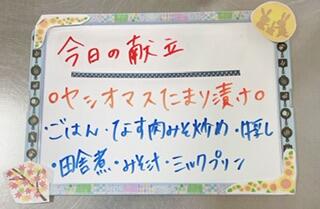 今日の献立
○ヤシオマスたまり漬け○
・ごはん・なす肉みそ炒め・蒸し
・田舎煮・みそ汁・ミルクプリン